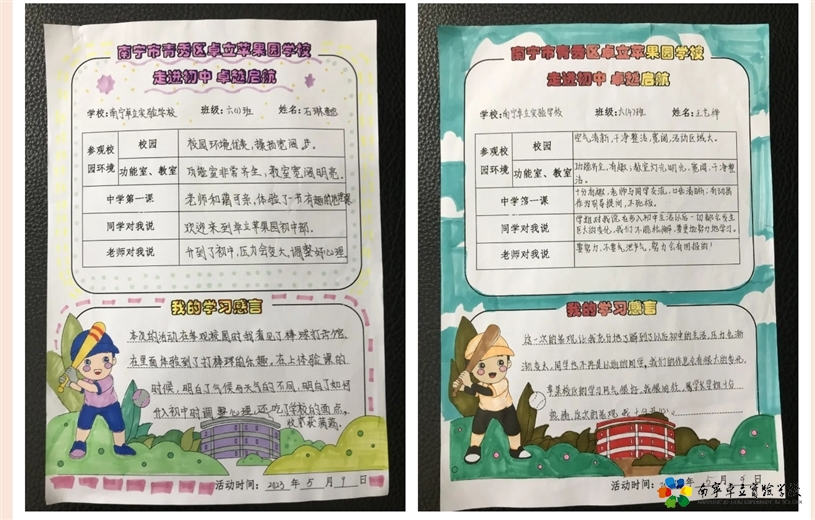 南宁市青秀区卓立苹果园学校
走进初中 卓越启航
学校:南宁卓立实验学校 班级:六(1)班 姓名:石琳懿
参观校园环境
校园
校园环境优美,操场宽阔
功能室、教室
功能室非常齐全,教室宽阔明亮。
中学第一课
老师和蔼可亲,体验了一节有趣的地理课
同学对我说
欢迎来到卓立苹果园初中部。
老师对我说
升到了初中,压力会变大,调整好心理
我的学习感言
本次的活动在参观校园时我看见了棒球打击馆,
在里面体验到了打棒球的乐趣。在上体验课的
时候,明白了气候与天气的不同,明白了如何
升入初中时调整心理,还吃了学校的面点。
活动时间:2023 年 5 月 9 日
南宁市青秀区卓立苹果园学校
走进初中 卓越启航
学校:南宁卓立实验学校 班级:六(4)班 姓名:王艺桦
参观校园环境
校园
空气清新,干净整洁,宽阔,活动区域大。
功能室、教室
功能齐全,有趣;教室灯光明亮,宽阔,干净整洁。
中学第一课
十分有趣,老师与同学交流,口齿清晰;有动画
作为引导提问,不死板。
同学对我说
学姐对我说,在步入初中生活以后一切都会发生
巨大的变化,我们不能松懈,要更加努力地学习。
老师对我说
要努力,不要气泄,努力会有回报的!
我的学习感言
这一次的参观,让我充分地了解到了以后初中的生活,压力也渐
渐变大,同学也不再是以他的同学。我们的作息也有很大的变化。
苹果校区的学习风气很好,我很喜欢,
活动时间: 年 5 月 9 日
南宁卓立实验学校